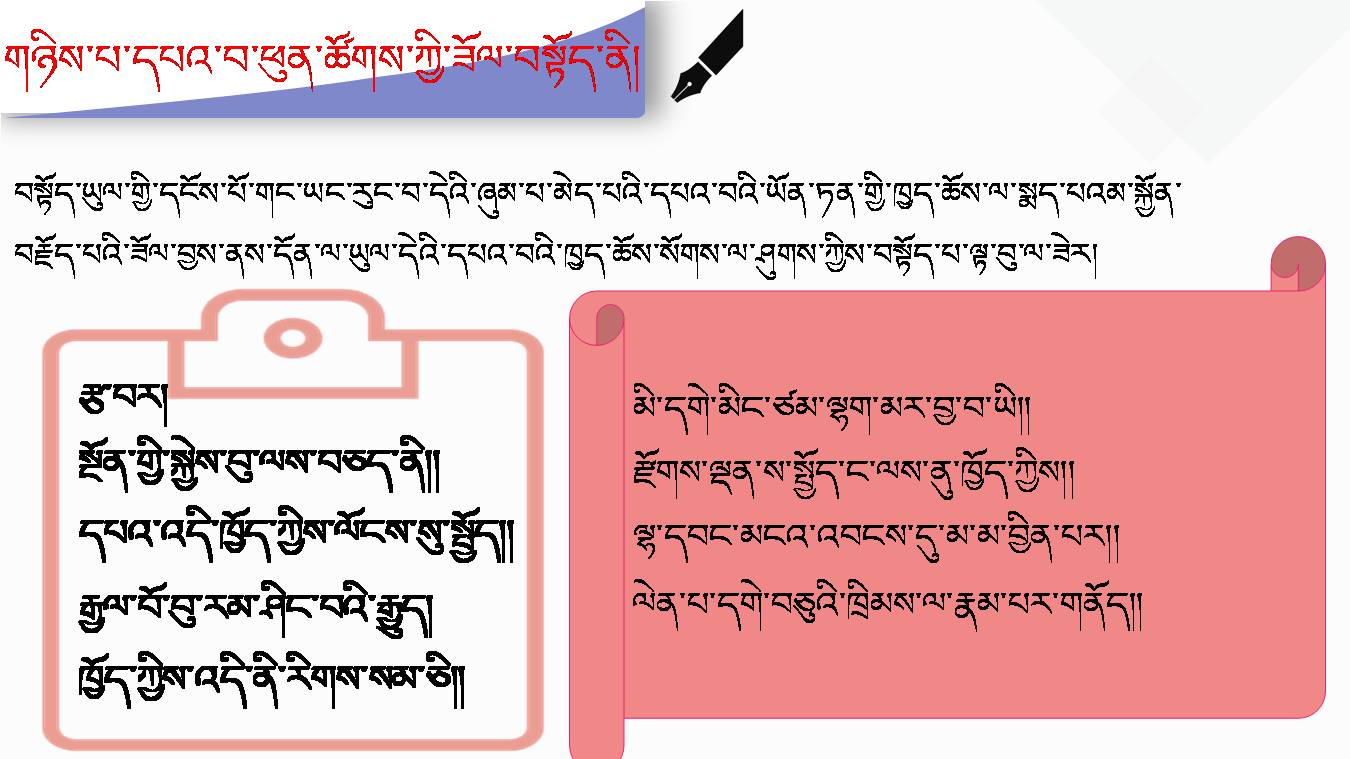 གཉིས་པ་དཔའ་བ་ཕུན་ཚོགས་ཀྱི་ཟོལ་བསྟོད་ནི།
བསྟོད་ཡུལ་གྱི་དངོས་པོ་གང་ཡང་རུང་བ་དེའི་ཞུམ་པ་མེད་པའི་དཔའ་བའི་ཡོན་ཏན་གྱི་ཁྱད་ཆོས་ལ་སྨད་པའམ་སྐྱོན་
བརྗོད་པའི་ཟོལ་བྱས་ནས་དོན་ལ་ཡུལ་དེའི་དཔའ་བའི་ཁྱད་ཆོས་སོགས་ལ་ཤུགས་ཀྱིས་བསྟོད་པ་ལྟ་བུ་ལ་ཟེར།
རྩ་བར།
སྔོན་གྱི་སྐྱེས་བུ་ལས་བཅད་ནི༎
དཔའ་འདི་ཁྱོད་ཀྱིས་ལོངས་སུ་སྤྱོད༎
རྒྱལ་པོ་བུ་རམ་ཤིང་བའི་རྒྱུད།
ཁྱོད་ཀྱིས་འདི་ནི་རིགས་སམ་ཅི༎
མི་དགེ་མིང་ཙམ་ལྷག་མར་བྱ་བ་ཡི༎
རྫོགས་ལྡན་ས་སྤྱོད་ང་ལས་ནུ་ཁྱོད་ཀྱིས༎
ལྷ་དབང་མངའ་འབངས་དུ་མ་མ་བྱིན་པར༎
ལེན་པ་དགེ་བཅུའི་ཁྲིམས་ལ་རྣམ་པར་གནོད༎